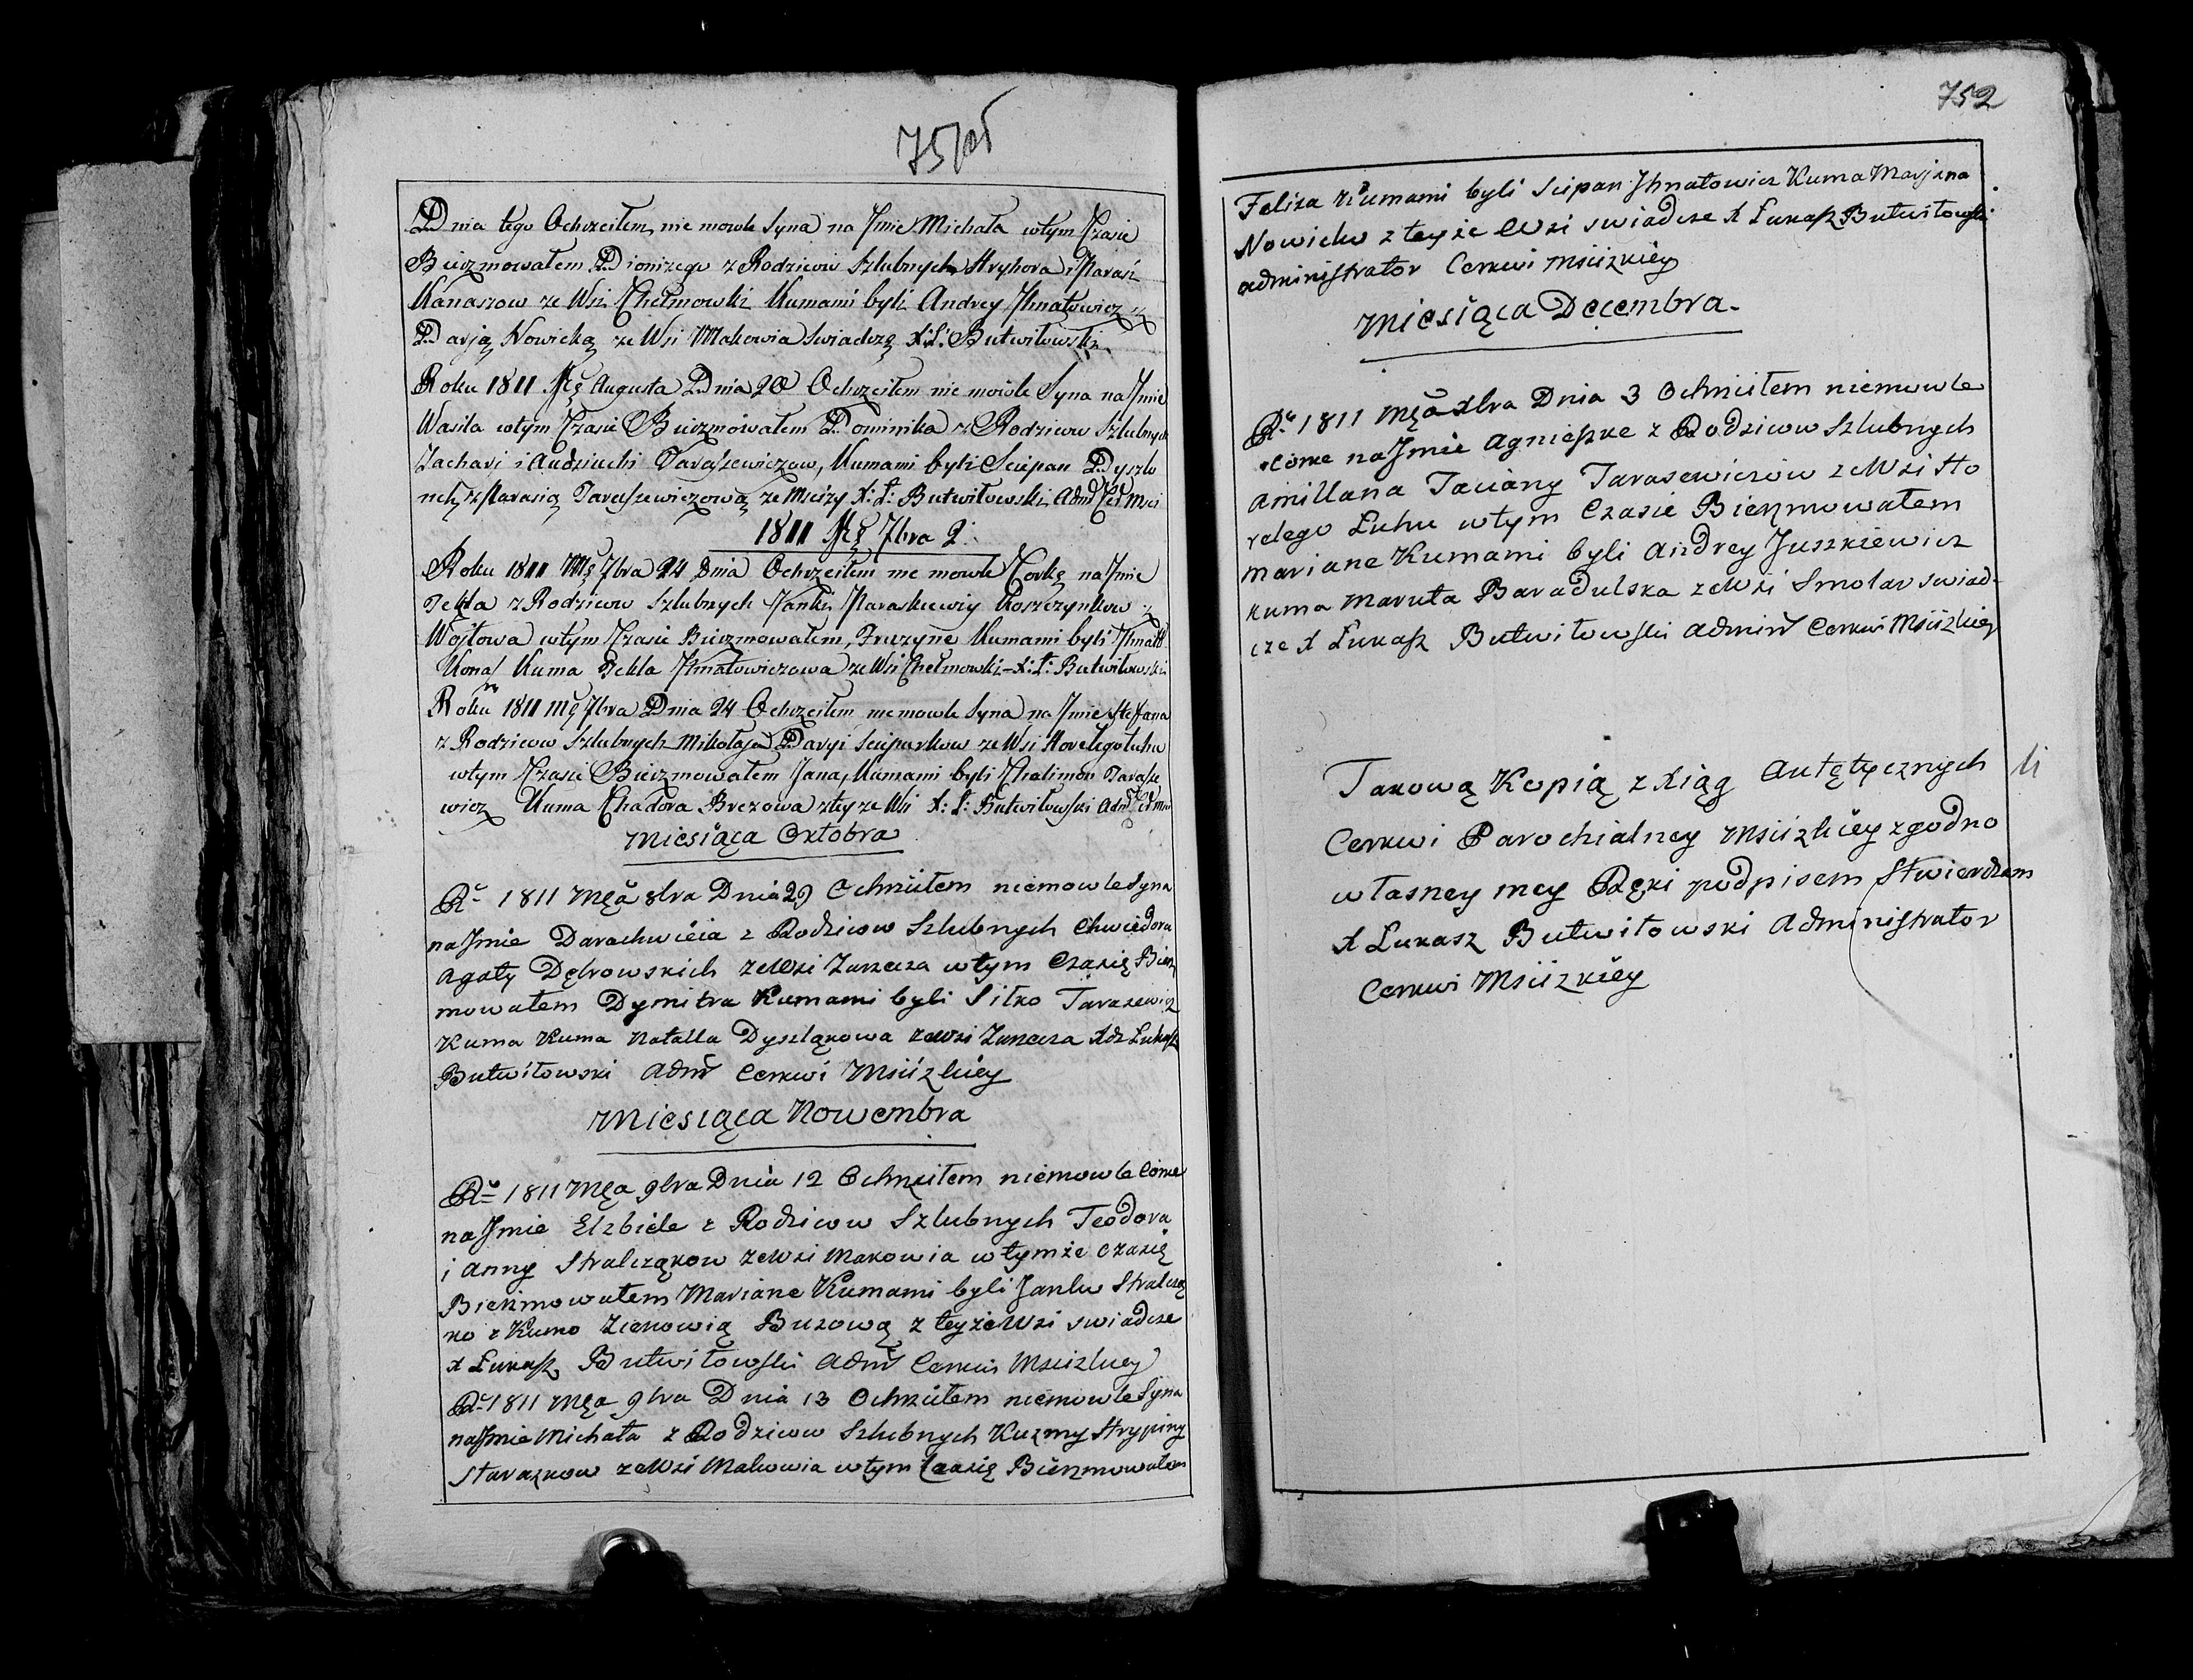 751об
Dnia tego Ochrzciłem nie mowle Syna na Jmie Michała wtym Czasie
Bierzmowałem Dionizego z Rodzicow Szlubnych Hryhora i Parasi
Kanaszow ze Wsi Chełmowki Kumami byli Andrey Jhnatowicz z
Darją Nowicką ze Wsi Makowia Swiadczę X: Ł: Butwiłowski
Roku 1811 Mcą Augusta Dnia 20 Ochrzciłem nie mowle Syna na Jmie
Wasila wtym Czasie Bierzmowałem Dominika z Rodzicow Szlubnych
Zacharj i Audziuchi Taraszewiczow, Kumami byli Sciepan Dyszlo
nek z Parasią Taraszewiczową ze Mscizy X: Ł: Butwiłowski Adm Cer Msci
1811 Mcą 7bra 2
Roku 1811 Mcą 7bra 24 Dnia Ochrzciłem nie mowle Corkę na Jmie
Tekla z Rodzicow Szlubnych Janki Paraskiewij Koszczynkow z
Wojtowa wtym Czasie Bierzmowałem, Fruzyne Kumami byli Jhnatt
Kona Kuma Tekla Jhnatowiczowa ze Wsi Chełmowki X: Ł: Butwiłowski
Roku 1811 Mcą 7bra Dnia 24 Ochrzciłem nie mowle Syna na Jmie Stefana
z Rodzicow Szlubnych Mikołaja Daryi Scipurkow ze Wsi Horelegołuhu
wtym Czasie Bierzmowałem Jana, Kumami byli Chalimon Tarase
wicz Kuma Chadora Brezowa z tey ze Wsi X: Ł: Butwiłowski Adm Cer Msci
Miesiąca Oktobra
Rũ 1811 Męã 8bra Dnia 29 Ochrzciłem niemowle Syna
na Jmie Darachwieia z Rodzicow Szlubnych Chwiedora
Agaty Dębrowskich ze Wsi Zarzecza wtym Czasię Bierz
mowałem Dymitra Kumami byli Sitko Tarasewicz
Kuma Kuma Natalla Dyszląkowa ze Wsi Zarzecza Xdz Łukasz
Butwiłowski Adm Cerkwi Msciżkiey
Miesiąca Nowembra
Rũ 1811 Męa 9bra Dnia 12 Ochrzciłem niemowle Córke
na Jmie Elzbiéte z Rodzicow Szlubnych Teodora
i Anny Stralcząkow ze Wsi Makowia wtymże Czasię
Bierzmowałem Mariane Kumami byli Janku Stralczą
ko z Kumo Zienowią Buzową z teyże Wsi swiadcze
X Łukasz Butwiłowski Adm Cerkwi Msciżkiey
Rũ 1811 Męa 9bra Dnia 13 Ochrzciłem niemowle Syna
na Jmie Michała z Rodzicow Szlubnych Kuzmy Hrypiny
Starazkow ze Wsi Makowia wtym Czasię Bierzmowałem
752
Felixa Kumami byli Scipan Jhnatowicz Kuma Maryjana
Nowicka z teyże Wsi swiadcze X Łukasz Butwiłowski
administrator Cerkwi Msciżkiey
Miesiąca Decembra
Rũ 1811 Męã Xbra Dnia 3 Ochrzciłem niemowle
córke na Jmie Agnieszke z Rodzicow Szlubnych
Amillana Taciany Tarasewiczów ze Wsi Ho
relego Łuhu wtym Czasie Bierzmowałem
Mariane Kumami byli Andrey Juszkiewicz
Kuma Maruta Baradulska ze Wsi Smolar swiad-
cze X Łukasz Butwiłowski Admin Cerkwi Msciżkiey
Takową Kopią z Xiąg Autętycznych
Cerkwi Parochialney Msciżkiey zgodno
własney mey Ręki podpisem Stwierdzam
X Łukasz Butwiłowski Administrator
Cerkwi Msciżkiey